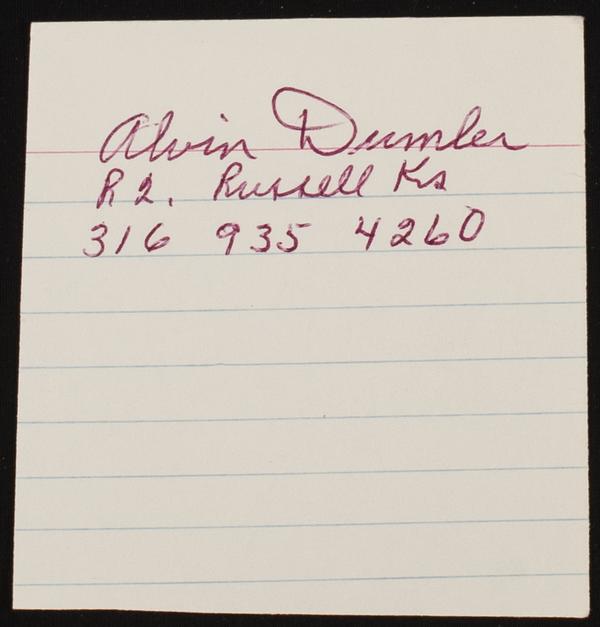 Alvin Dumler
R 2. Russell Ks
316 935 4260